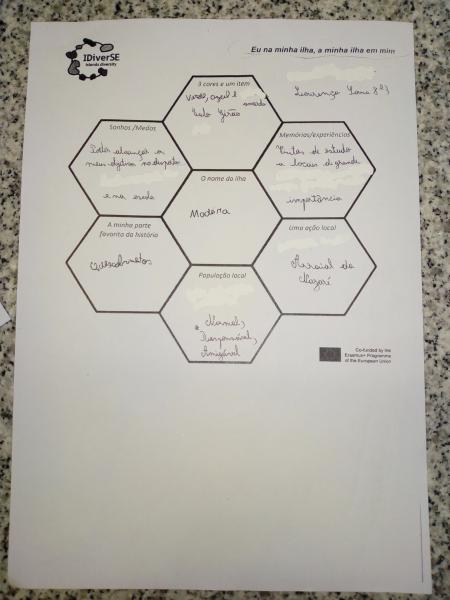 IDiverSE
Islands diversity
Eu na minha ilha, a minha ilha em mim
3 cores e um item
Verde, azul e
Cabo Girão
Sonhos /Medos
Poder alcançar os
meus objetivos no desporto
e na escola
Memórias/experiências
Visitas de estudo
a locais de grande
importância
O nome da ilha
Madeira
A minha parte
favorita da história
Descobrimentos
Uma ação local
Arraial da
Nazaré
População local
Normal,
Responsável,
Amigável
Co-funded by the
Erasmus+ Programme
of the European Union